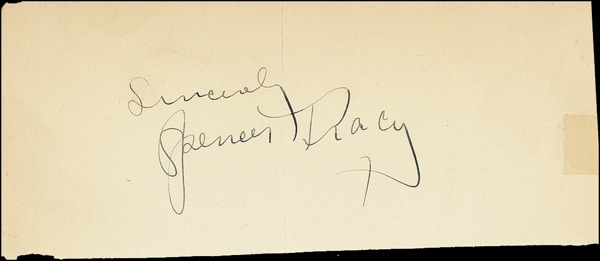 Sincerely
Spencer Tracy